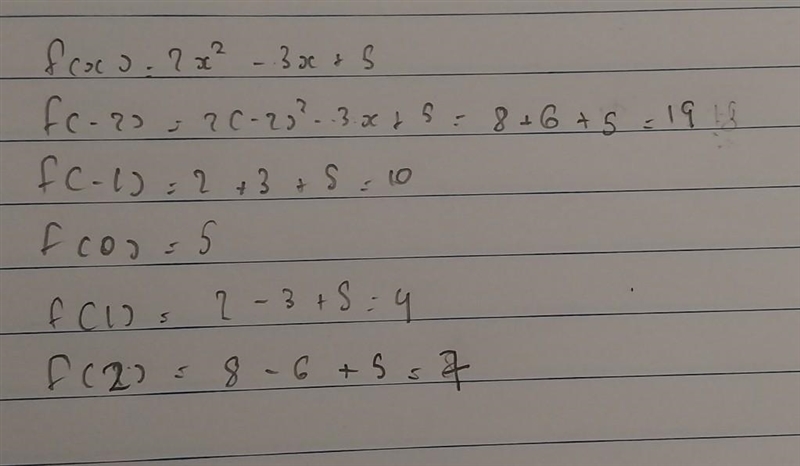 f(x) = 2x² - 3x + 5
f(-2) = 2(-2)² - 3x + 5 = 8 + 6 + 5 = 19
f(-1) = 2 + 3 + 5 = 10
f(0) = 5
f(1) = 2 - 3 + 5 = 4
f(2) = 8 - 6 + 5 = 7